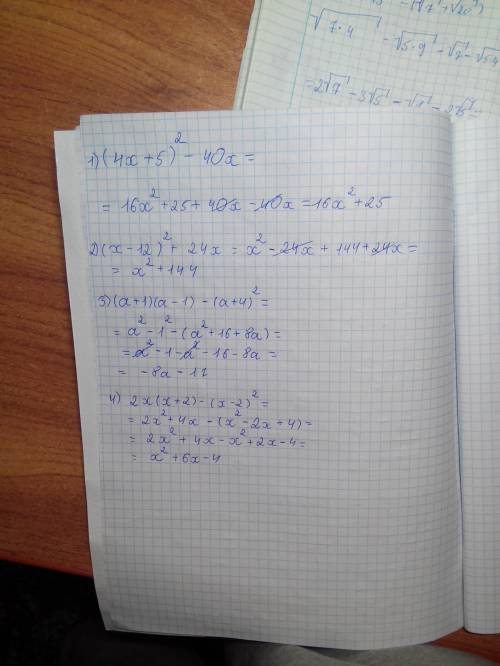 √7·4 - √5·9 - √7 - √5·4
= 2√7 - 3√5 - √7 - 2√5 =
1) (4x+5)² - 40x =
= 16x² + 25 + 40x - 40x = 16x² + 25
2) (x-12)² + 24x = x² - 24x + 144 + 24x =
= x² + 144
3) (a+1)(a-1) - (a+4)² =
= a² - 1² - (a² + 16 + 8a) =
= a² - 1 - a² - 16 - 8a =
= -8a - 17
4) 2x(x+2) - (x-2)² =
= 2x² + 4x - (x² - 2x + 4) =
= 2x² + 4x - x² + 2x - 4 =
= x² + 6x - 4